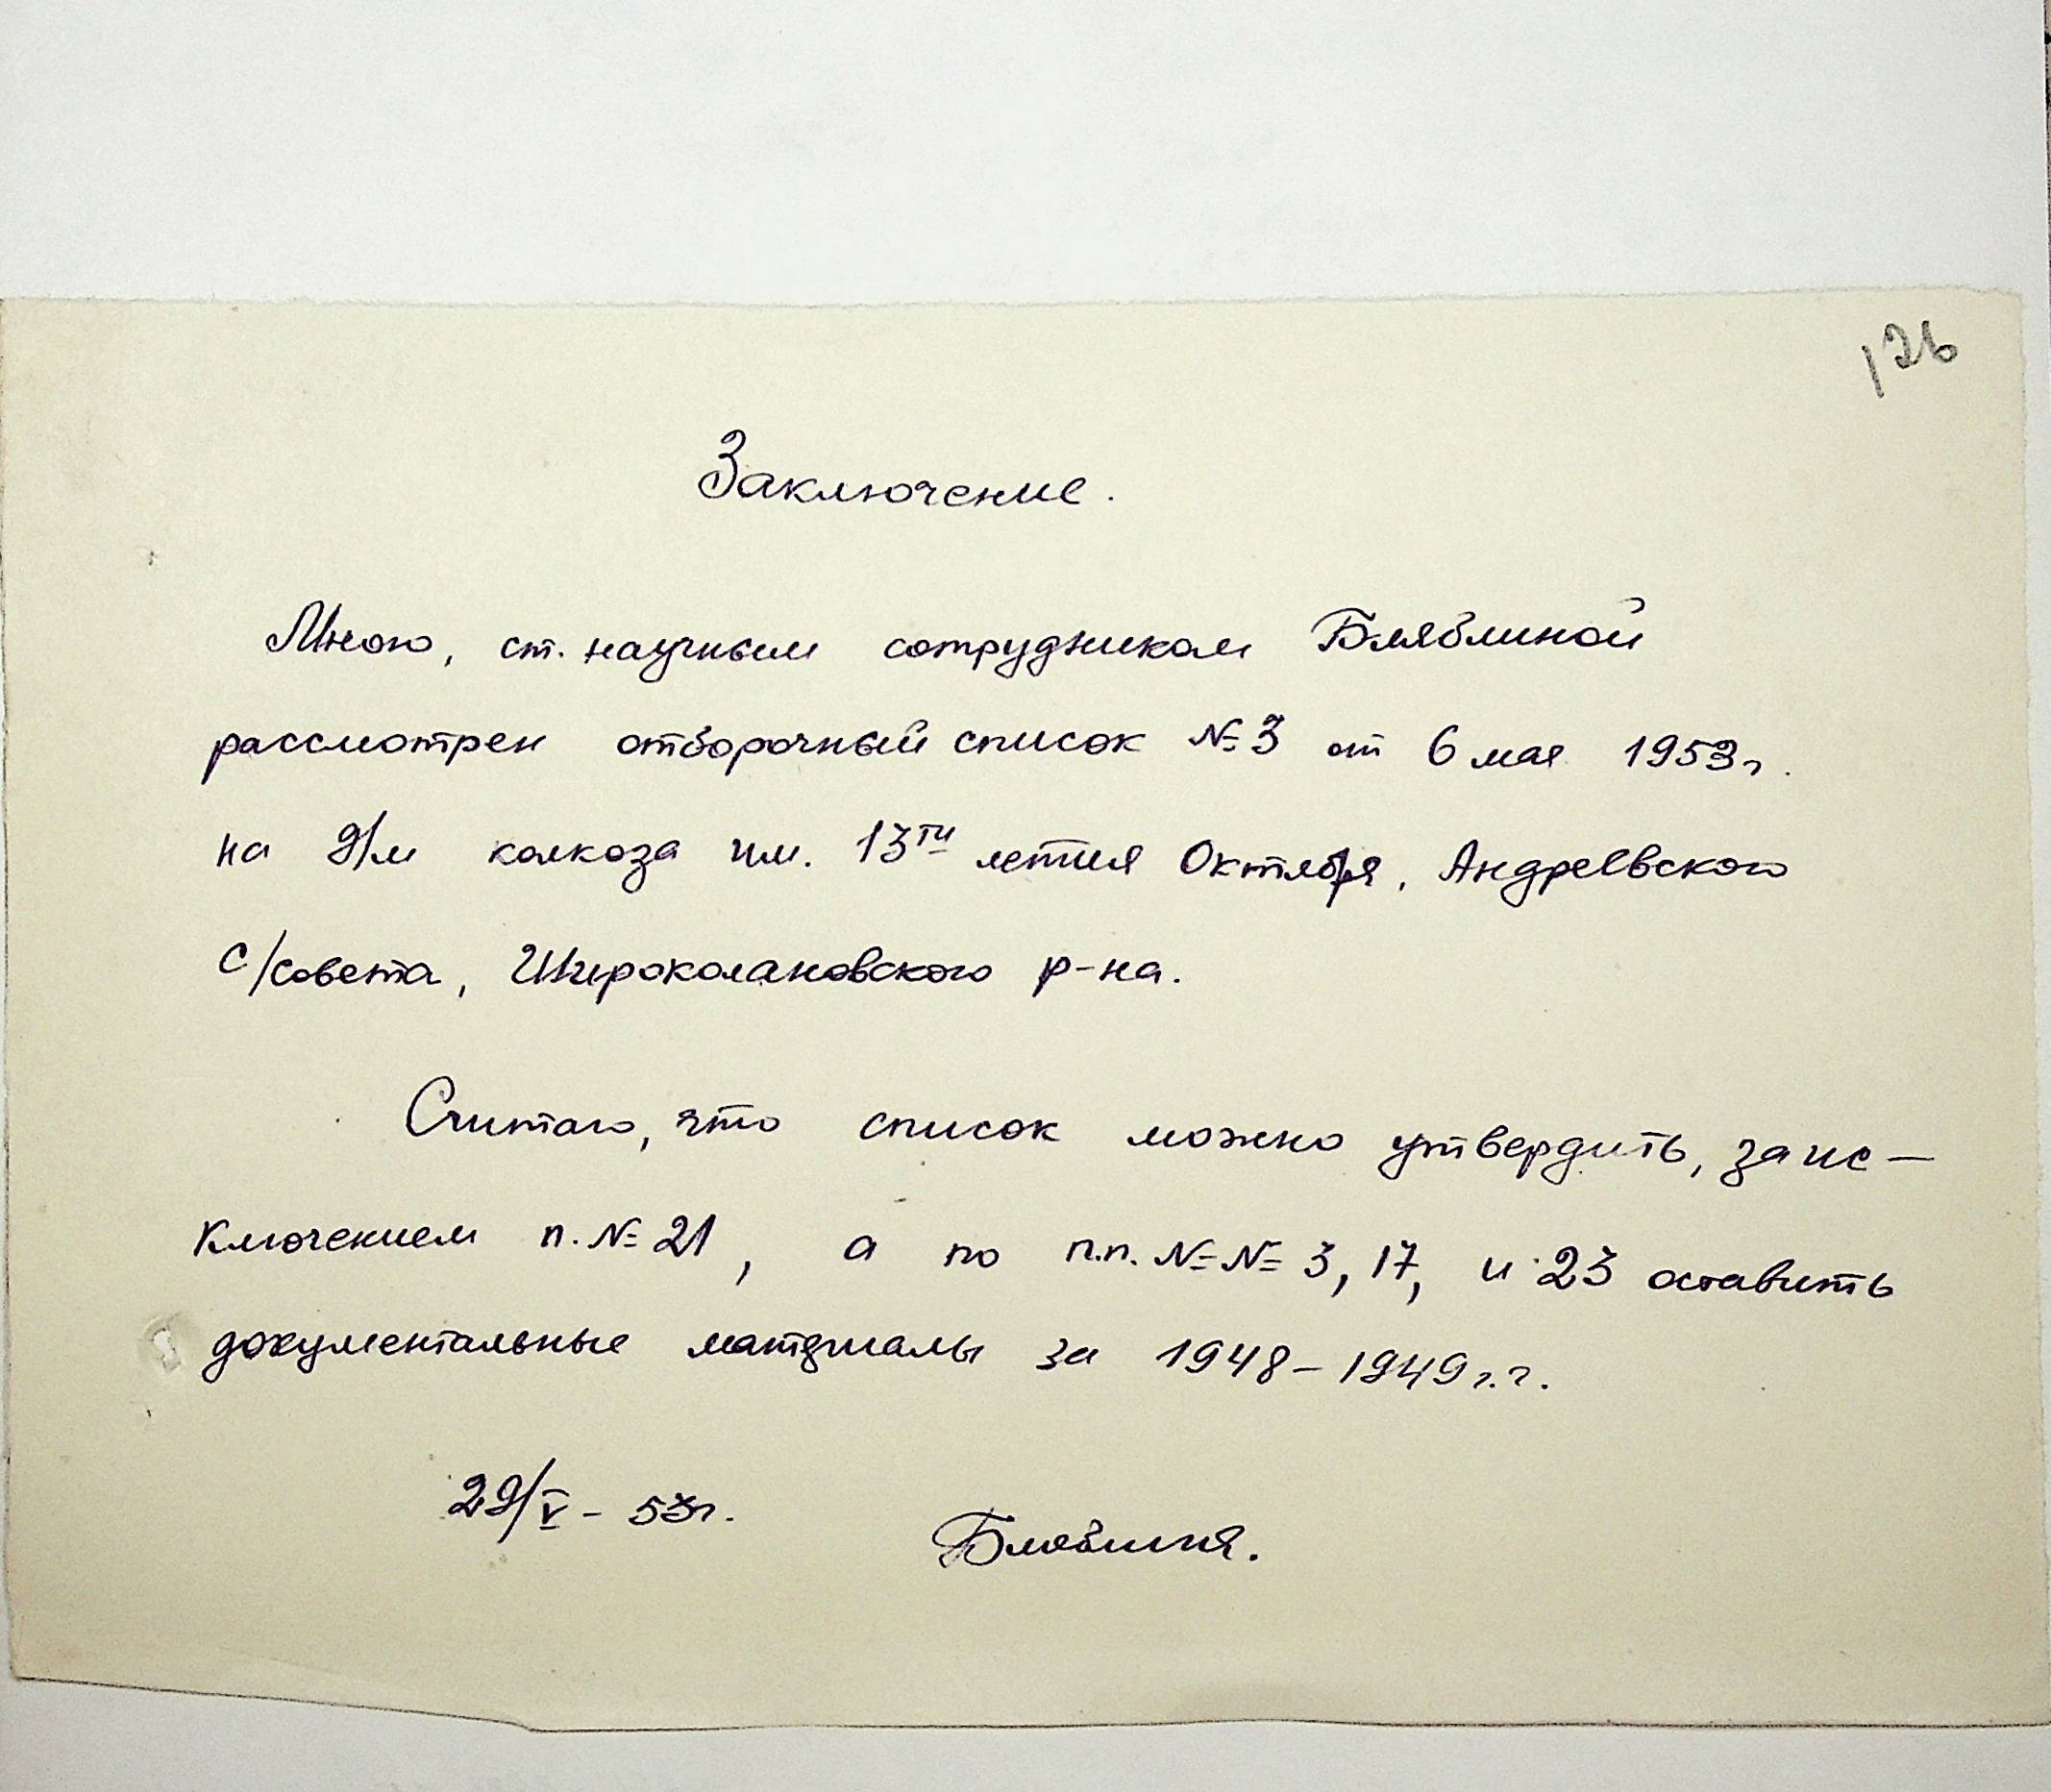 126
Заключение.
Мною, ст. научным сотрудником Бляблиной
рассмотрен отборочный список № 3 от 6 мая 1953 г.
на д/м колхоза им. 13ти летия Октября, Андреевского
с/совета, Широколановского р-на.
Считаю, что список можно утвердить, за ис-
ключением п. № 21, а по п.п. №№ 3, 17, и 23 оставить
документальные материалы за 1948-1949 г.г.
29/V - 53г.